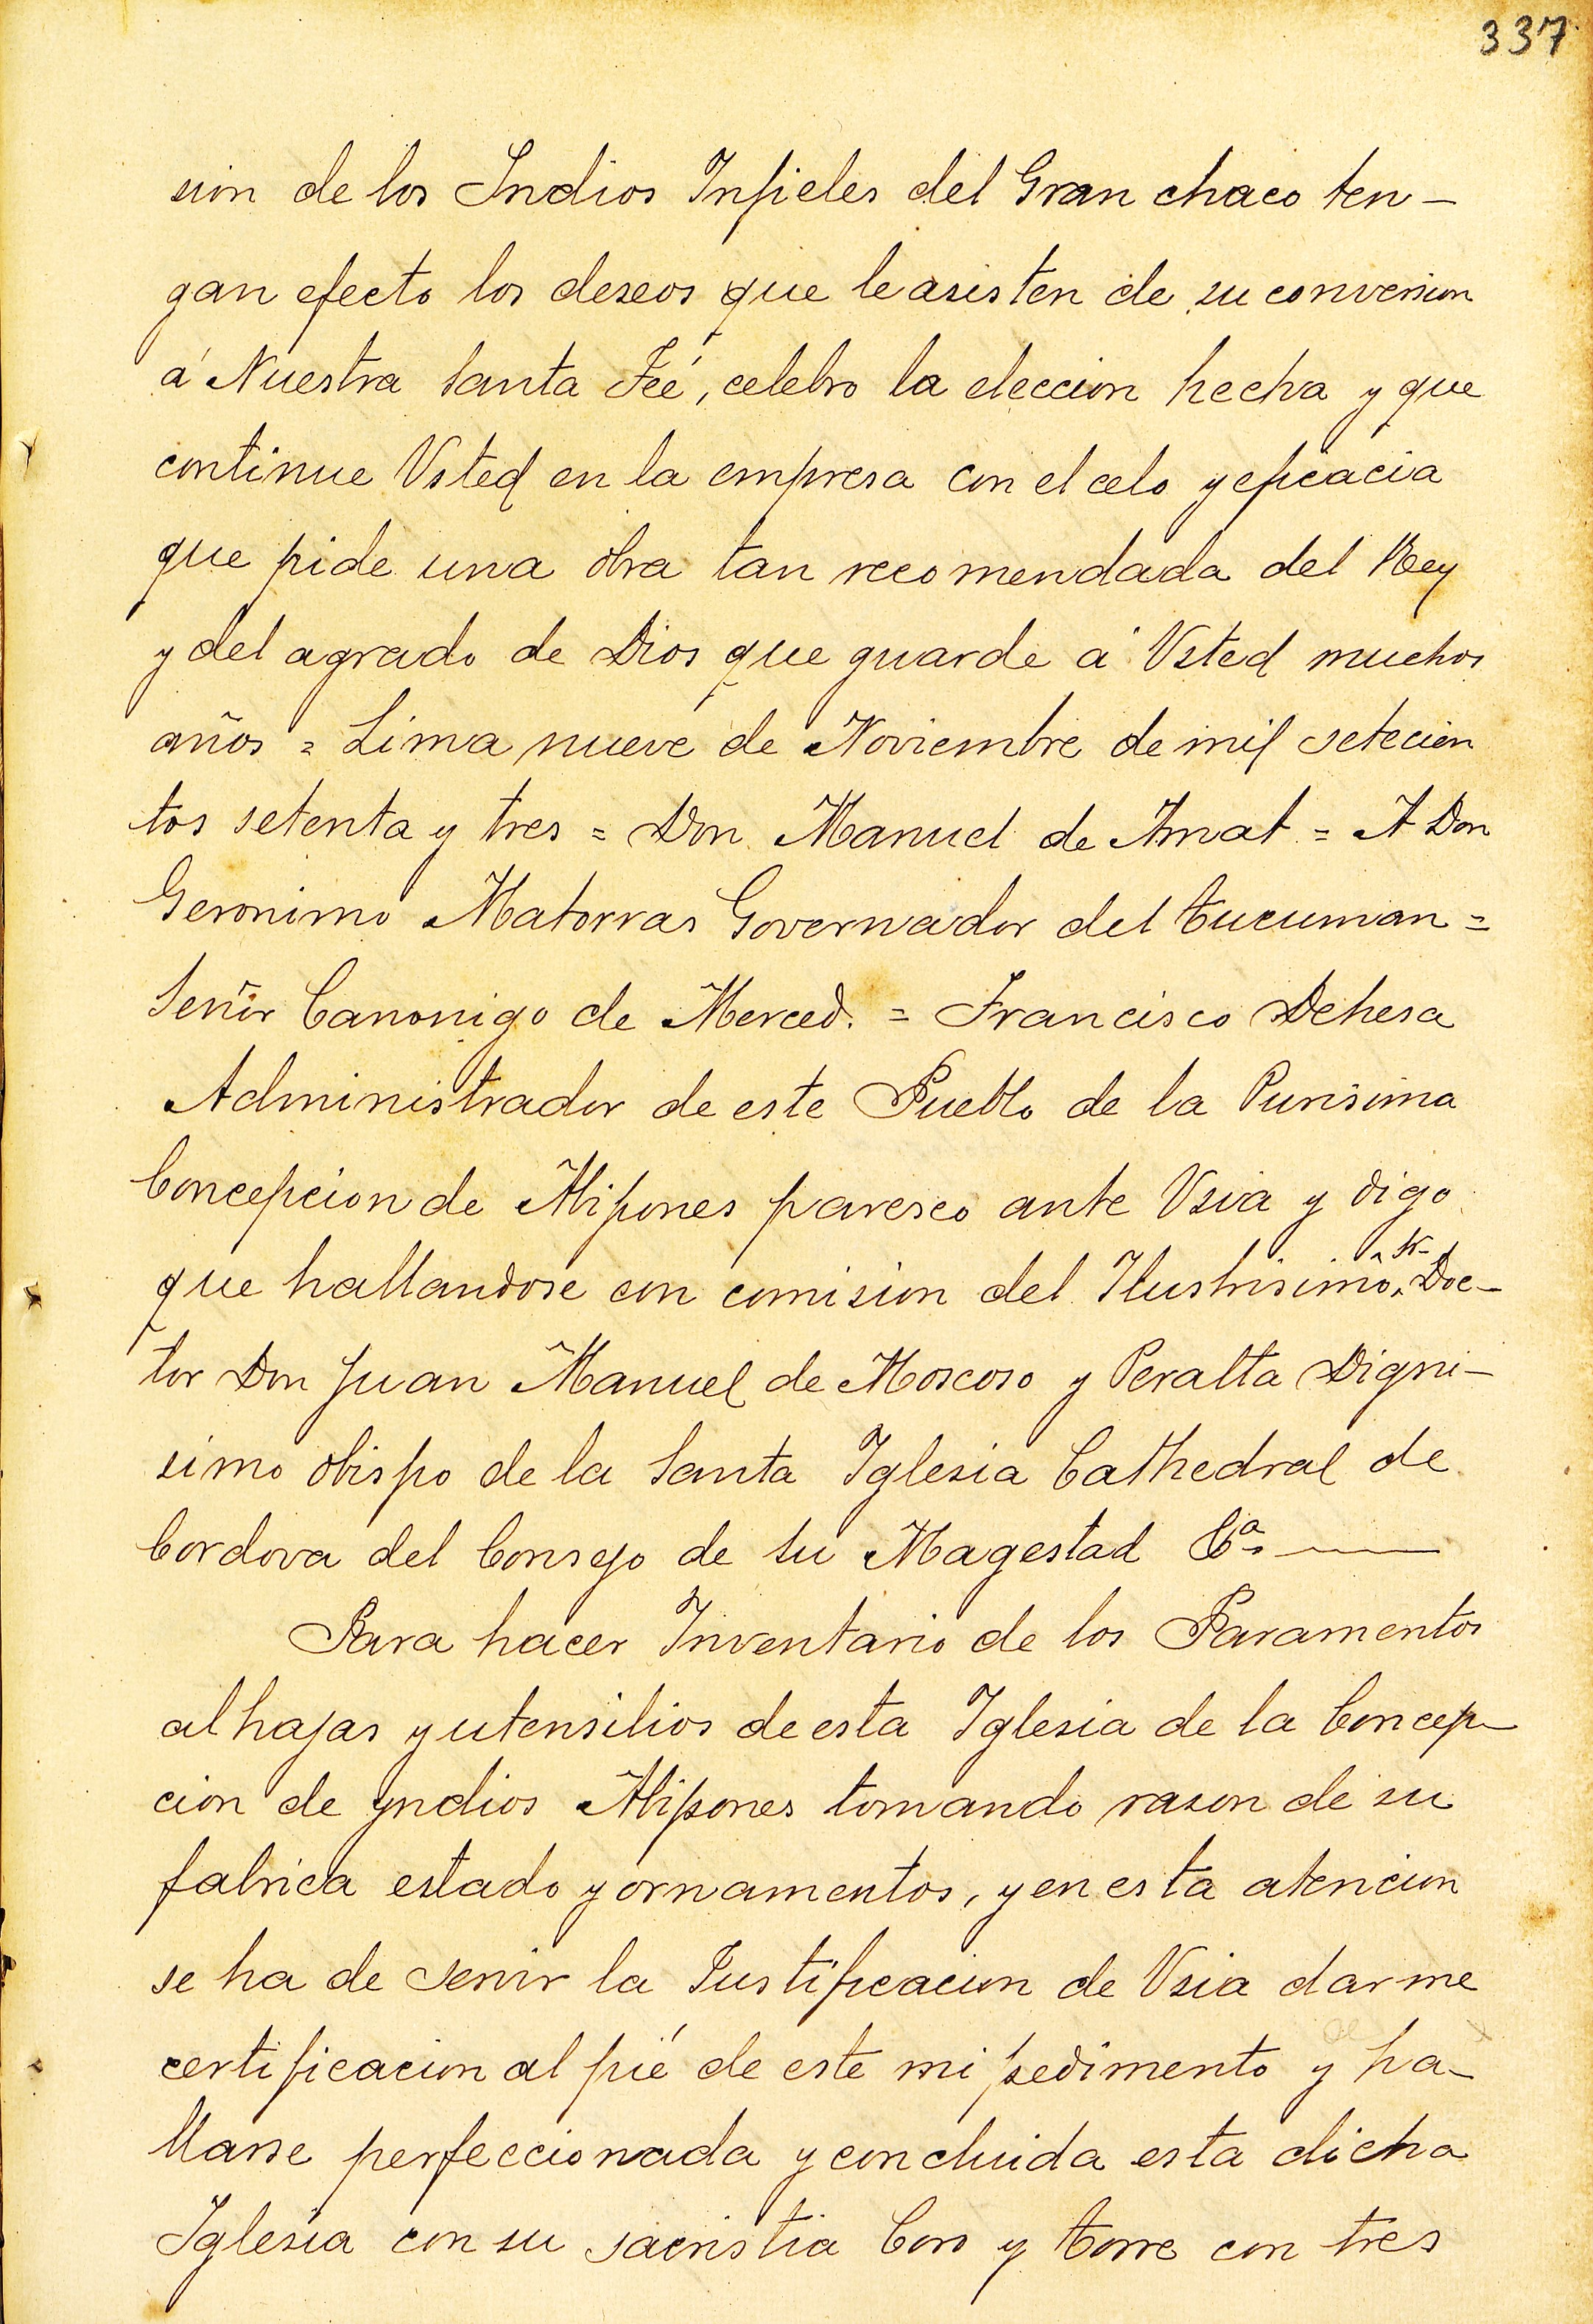 337
sion de los Indios Infieles del Gran chaco ten-
gan efecto los deseos que le asisten de su conversion
á Nuestra Santa Feé, celebro la eleccion hecha y que
continue Usted en la empresa con el celo y eficacia
que pide una obra tan recomendada del Rey
y del agrado de Dios que guarde á Usted muchos
años = Lima nueve de Noviembre de mil setecien
tos setenta y tres = Don Manuel de Amat = A Don
Geronimo Matorras Governador del Tucuman =
Señor Canonigo de Merced. = Francisco Dehesa
Administrador de este Pueblo de la Purisima
Concepcion de Abipones paresco ante Usia y digo
que hallandose con comision del Ilustrisimo Sr. Doc-
tor Don Juan Manuel de Moscoso y Peralta Digni-
simo obispo de la Santa Iglesia Cathedral de
Cordova del Consejo de Su Magestad Ca.
Para hacer Inventario de los Paramentos
alhajas y utensilios de esta Iglesia de la Concep-
cion de yndios Abipones tomando rason de su
fabrica estado y ornamentos, y en esta atencion
se ha de servir la Justificacion de Usia darme
certificacion al pié de este mi pedimento de y ha-
llarse perfeccionada y concluida esta dicha
Iglesia con su sacristia Coro y torre con tres